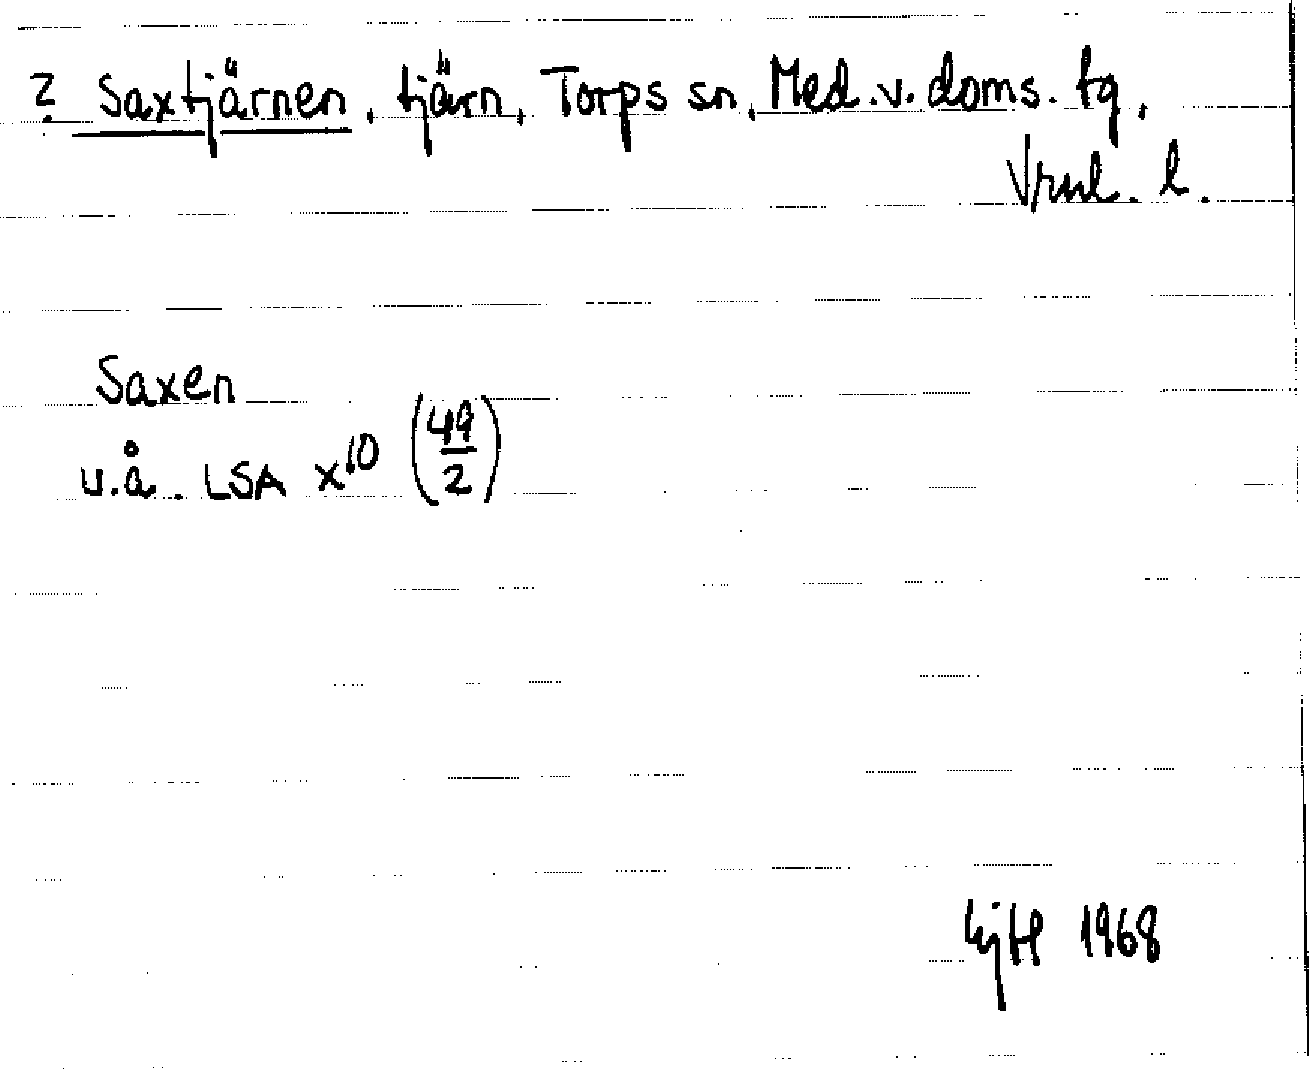 ? Saxtjärnen, tjärn, Torps sn, Med. v. doms. tg,
Vrnl. l.
Saxen
u.å. LSA x¹⁰ (49/2)
1968